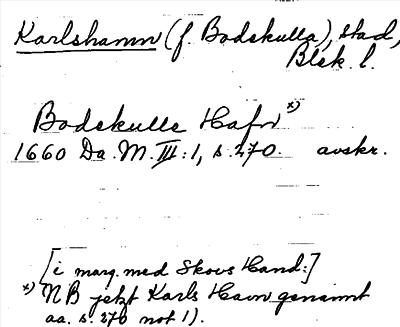 Karlshamn (f. Bodekulla), stad,
Blek. l.
Bodekulle Hafn x)
1660 Da. M. III:1, s. 270. avskr.
[i marg. med Skovs Hand:]
x) NB jetzt Karls Havn genannt
aa. s. 270 not 1).